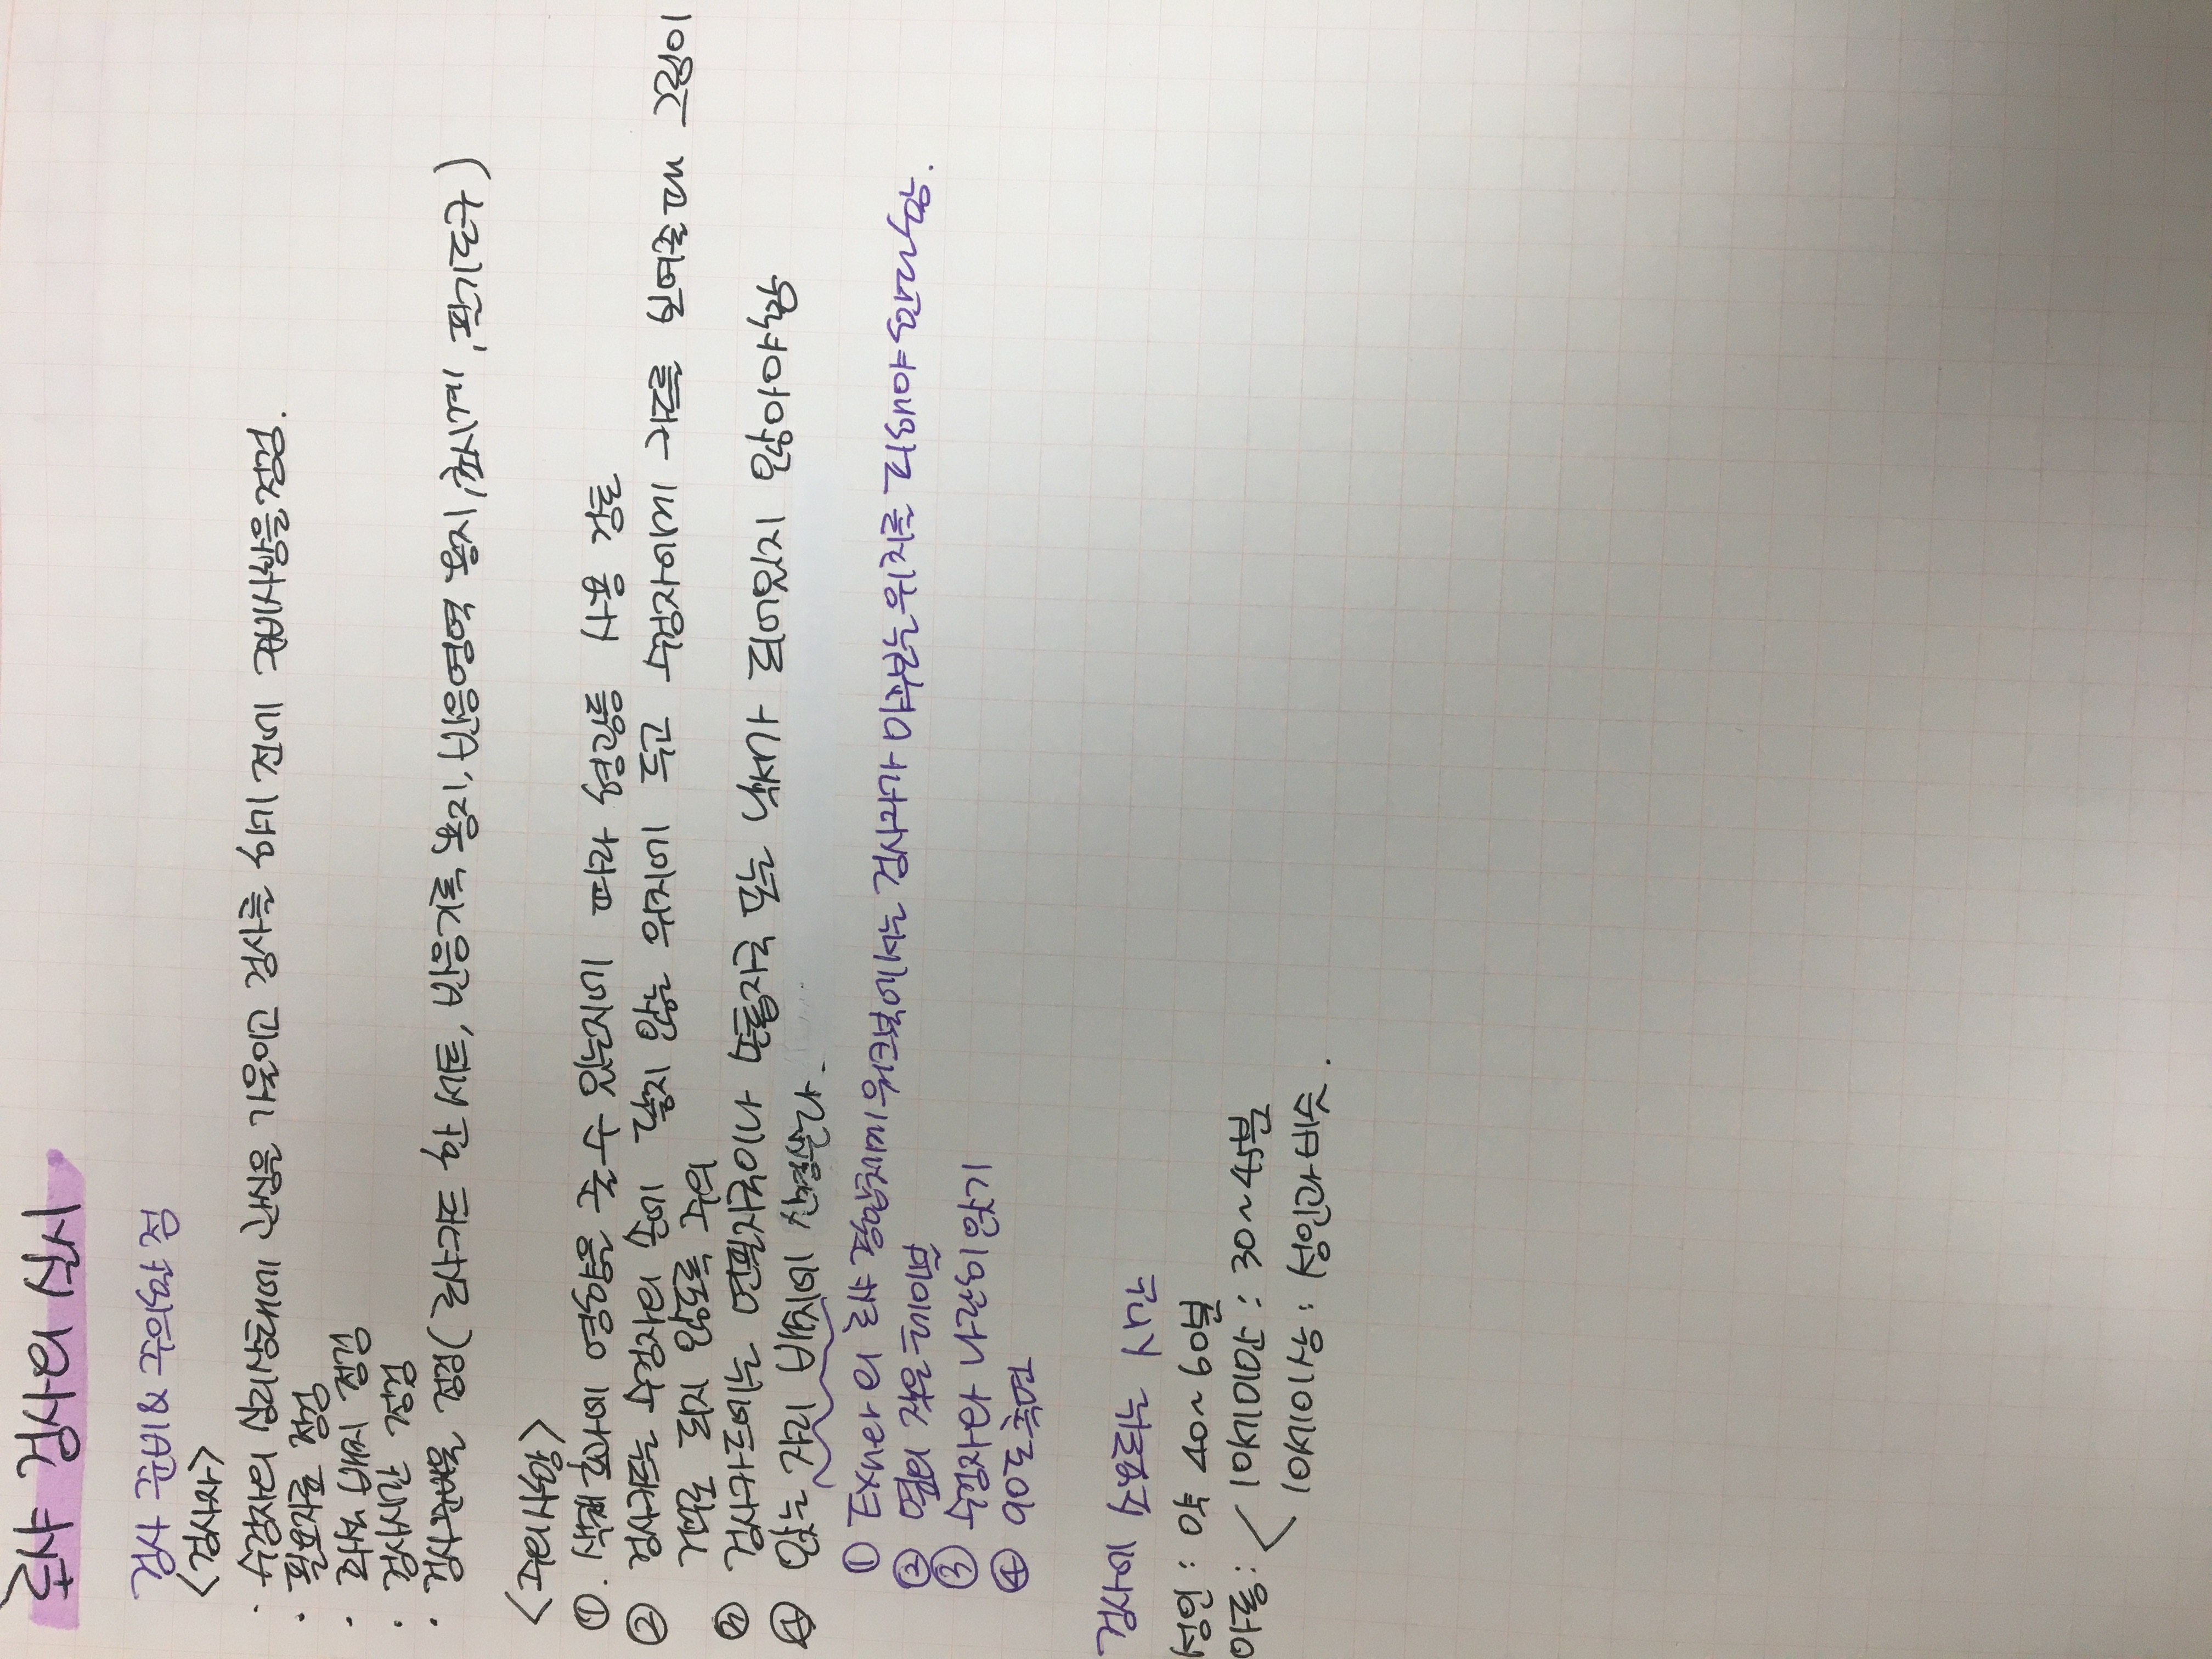 로샤 검사의 실시
검사 준비 & 주의할 점
<검사자>
· 수검자의 심리상태에 관심을 기울이고 검사를 하기 전에 준비사항을 점검.
· 필요자료 점검
· 좌석 배치 점검
· 검사시간 점검
· 검사준비물 점검 (로샤카드 한 세트, 반응기록 용지, 반응영역 용지, 초시계, 필기도구)
<주의사항>
①. 색채 효과에 영향을 줄 수 있는지에 따라 형광등 사용 검토
② 검사카드는 수검자의 손에 닿지 않는 위치에 두고 수검자에게 카드를 보여줄 때 그림이
거꾸로 되지 않도록 주의
③ 검사카드에는 연필자국이나 손톱자국 또는 낙서가 되어있지 않아야 함
④ 앉는 자리 배치에 신경쓴다.
① Exner의 로샤 종합체계 워크북에서는 검사자가 마주보는 위치를 피해야 한다 함.
② 옆의 작은 테이블
③ 수검자와 나란히 앉기
④ 90도 측면
검사에 소요되는 시간
성인 : 약 40~60분
아동 : < 10세미만 : 30~45분
10세이상 : 성인과 비슷.